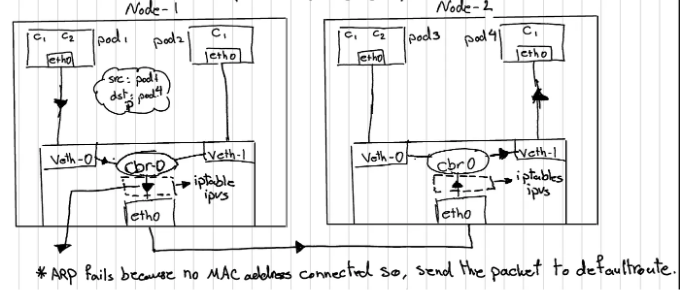 Node-1
Node-2
C1 C2 pod1
eth0
pod2 C1
eth0
src: pod1
dst: pod4
P
Veth-0
cbr-0
Veth-1
iptable
ipvs
eth0
C1 C2 pod3
eth0
pod4 C1
eth0
Veth-0
cbr0
Veth-1
iptables
ipvs
eth0
* ARP fails because no MAC address connected so, send the packet to defaultroute.